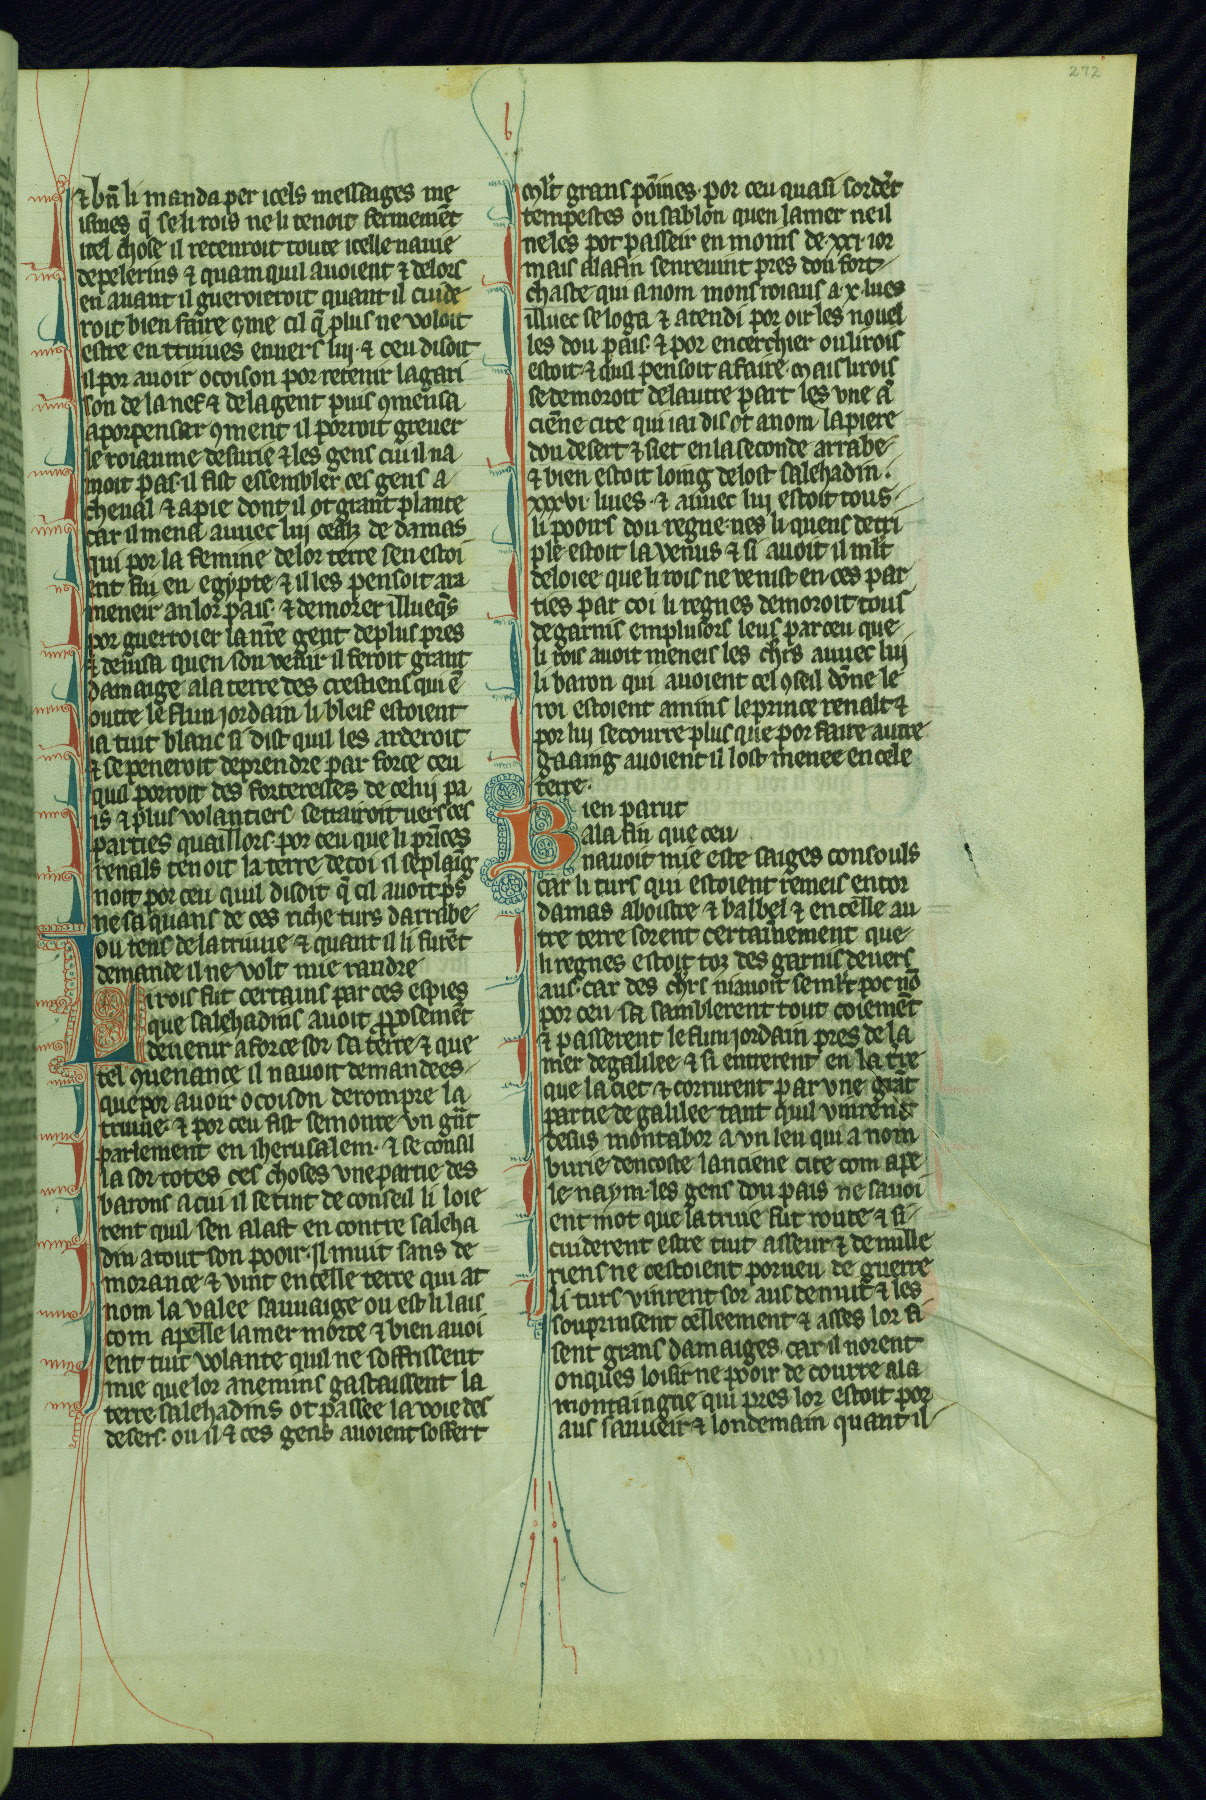 272
b
⁊ bñ li manda per icels messaiges me
ismes q̃ se li rois ne li tenoit fermemẽt
itel chose il retenroit toute icelle nauie
de pelerins ⁊ quamquil auoient ⁊ delors
en auant il guerroieroit quant il cuide
roit bien faire ꝯme cil q̃ plus ne voloit
estre en triuues enuers lui ⁊ ceu disoit
il por auoir ocoison por retenir la gari
son de la nef ⁊ de la gent puis ꝯmensa
a porpenser ꝯment il porroit greuer
le roiaume de surie ⁊ les gens cui il na
moit pas il fist essembler ces gens a
cheual ⁊ a pie dont il ot grant plante
car il mena auuec lui ceaz de damas
qui por la femine de lor terre sen estoi
ent fui en egypte ⁊ il les pensoit a ra
meneir an lor pais ⁊ demorer illueq̃s
por guerroier la nr̃e gent de plus pres
⁊ deuisa quen son venir il feroit grant
damaige a la terre des crestiens qui ẽ
outre le flun jordain li bleif estoient
ia tuit blanc si dist quil les arderoit
⁊ se peneroit de prendre par force ceu
quil porroit des forteresses de celui pa
is ⁊ plus volantiers se trairoit uers ces
parties quaillors por ceu que li prĩces
renals tenoit la terre de toi il se plaĩg
noit por ceu quil disoit q̃ cil auoit p̃s
ne sa quans de ces riche turs darrabe
ou tens de la triuue ⁊ quant il li furẽt
demande il ne volt mie randre
Li rois fut certains par ces espies
que salehadins auoit ꝓposemẽt
de uenir a force sor sa terre ⁊ que
tel quenance il nauoit demandees
que por auoir ocoison de rompre la
triuue ⁊ por ceu fist semonre vn gñt
parlement en iherusalem ⁊ se consil
la sor totes ces choses vne partie des
barons a cui il se tint de conseil li loie
rent quil sen alast en contre saleha
din a tout son pooir Il muit sans de
morance ⁊ vint en celle terre qui at
nom la valee sauuaige ou est li lais
com apelle la mer morte ⁊ bien auoi
ent tuit volante quil ne soffrissent
mie que lor anemins gastaissent la
terre salehadins ot passee la voie des
desers ou il ⁊ ces gens auoient soffert
mlt̃ grans poĩnes por ceu quasi sordẽt
tempestes ou sablon quen la mer ne il
ne les pot passeir en moins de xxi ior
mais a la fin sen reuint pres dou fort
chaste qui a nom mons roiaus a x lues
illuec se loga ⁊ atendi por oir les nouel
les dou pais ⁊ por encerchier ou li rois
estoit ⁊ quil pensoit a faire Mais li rois
se demoroit de lautre part les vne ã
ciẽne cite qui iai dis ot a nom la piere
dou desert ⁊ siet en la seconde arrabe
⁊ bien estoit loing de lost salehadin
xxxvi liues ⁊ auuec lui estoit tous
li pooirs dou regne nes li quens de tri
ple estoit la venus ⁊ si auoit il mlt̃
deloiee que li rois ne venist en ces par
ties par coi li regnes demoroit tous
degarnis em plusors leus par ceu que
li rois auoit meneis les chr̃s auuec lui
li baron qui auoient cel ꝯseil dõne le
roi estoient amins le prince renalt ⁊
por lui secourre plus que por faire autre
gaaing auoient il lost menee en cele
terre
Bien parut
a la fin que ceu
nauoit mie este saiges consouls
car li turs qui estoient remeis entor
damas a boistre ⁊ balbel ⁊ en celle au
tre terre sorent certainement que
li regnes estoit toz desgarnis deuers
aus car des chr̃s ni auoit semlt̃ poc nõ
por ceu sa samblerent tout coiemẽt
⁊ passerent le flun jordain pres de la
mer de galilee ⁊ si entrerent en la tr̃e
que la ciet ⁊ corrurent par vne grãt
partie de galilee tant quil vinrent
desus montabor a vn leu qui a nom
burie dencoste lanciene cite com ape
le naym les gens dou pais ne sauoi
ent mot que la triue fut route ⁊ si
cuiderent estre tuit asseur ⁊ de nulle
riens ne cestoient porueu de guerre
li turs vinrent sor aus de nuit ⁊ les
souprinsent celleement ⁊ asses lor fi
sent grans damaiges car il norent
onques loisir ne pooir de courre a la
montaingne qui pres lor estoit por
aus sauueir ⁊ londemain quant il